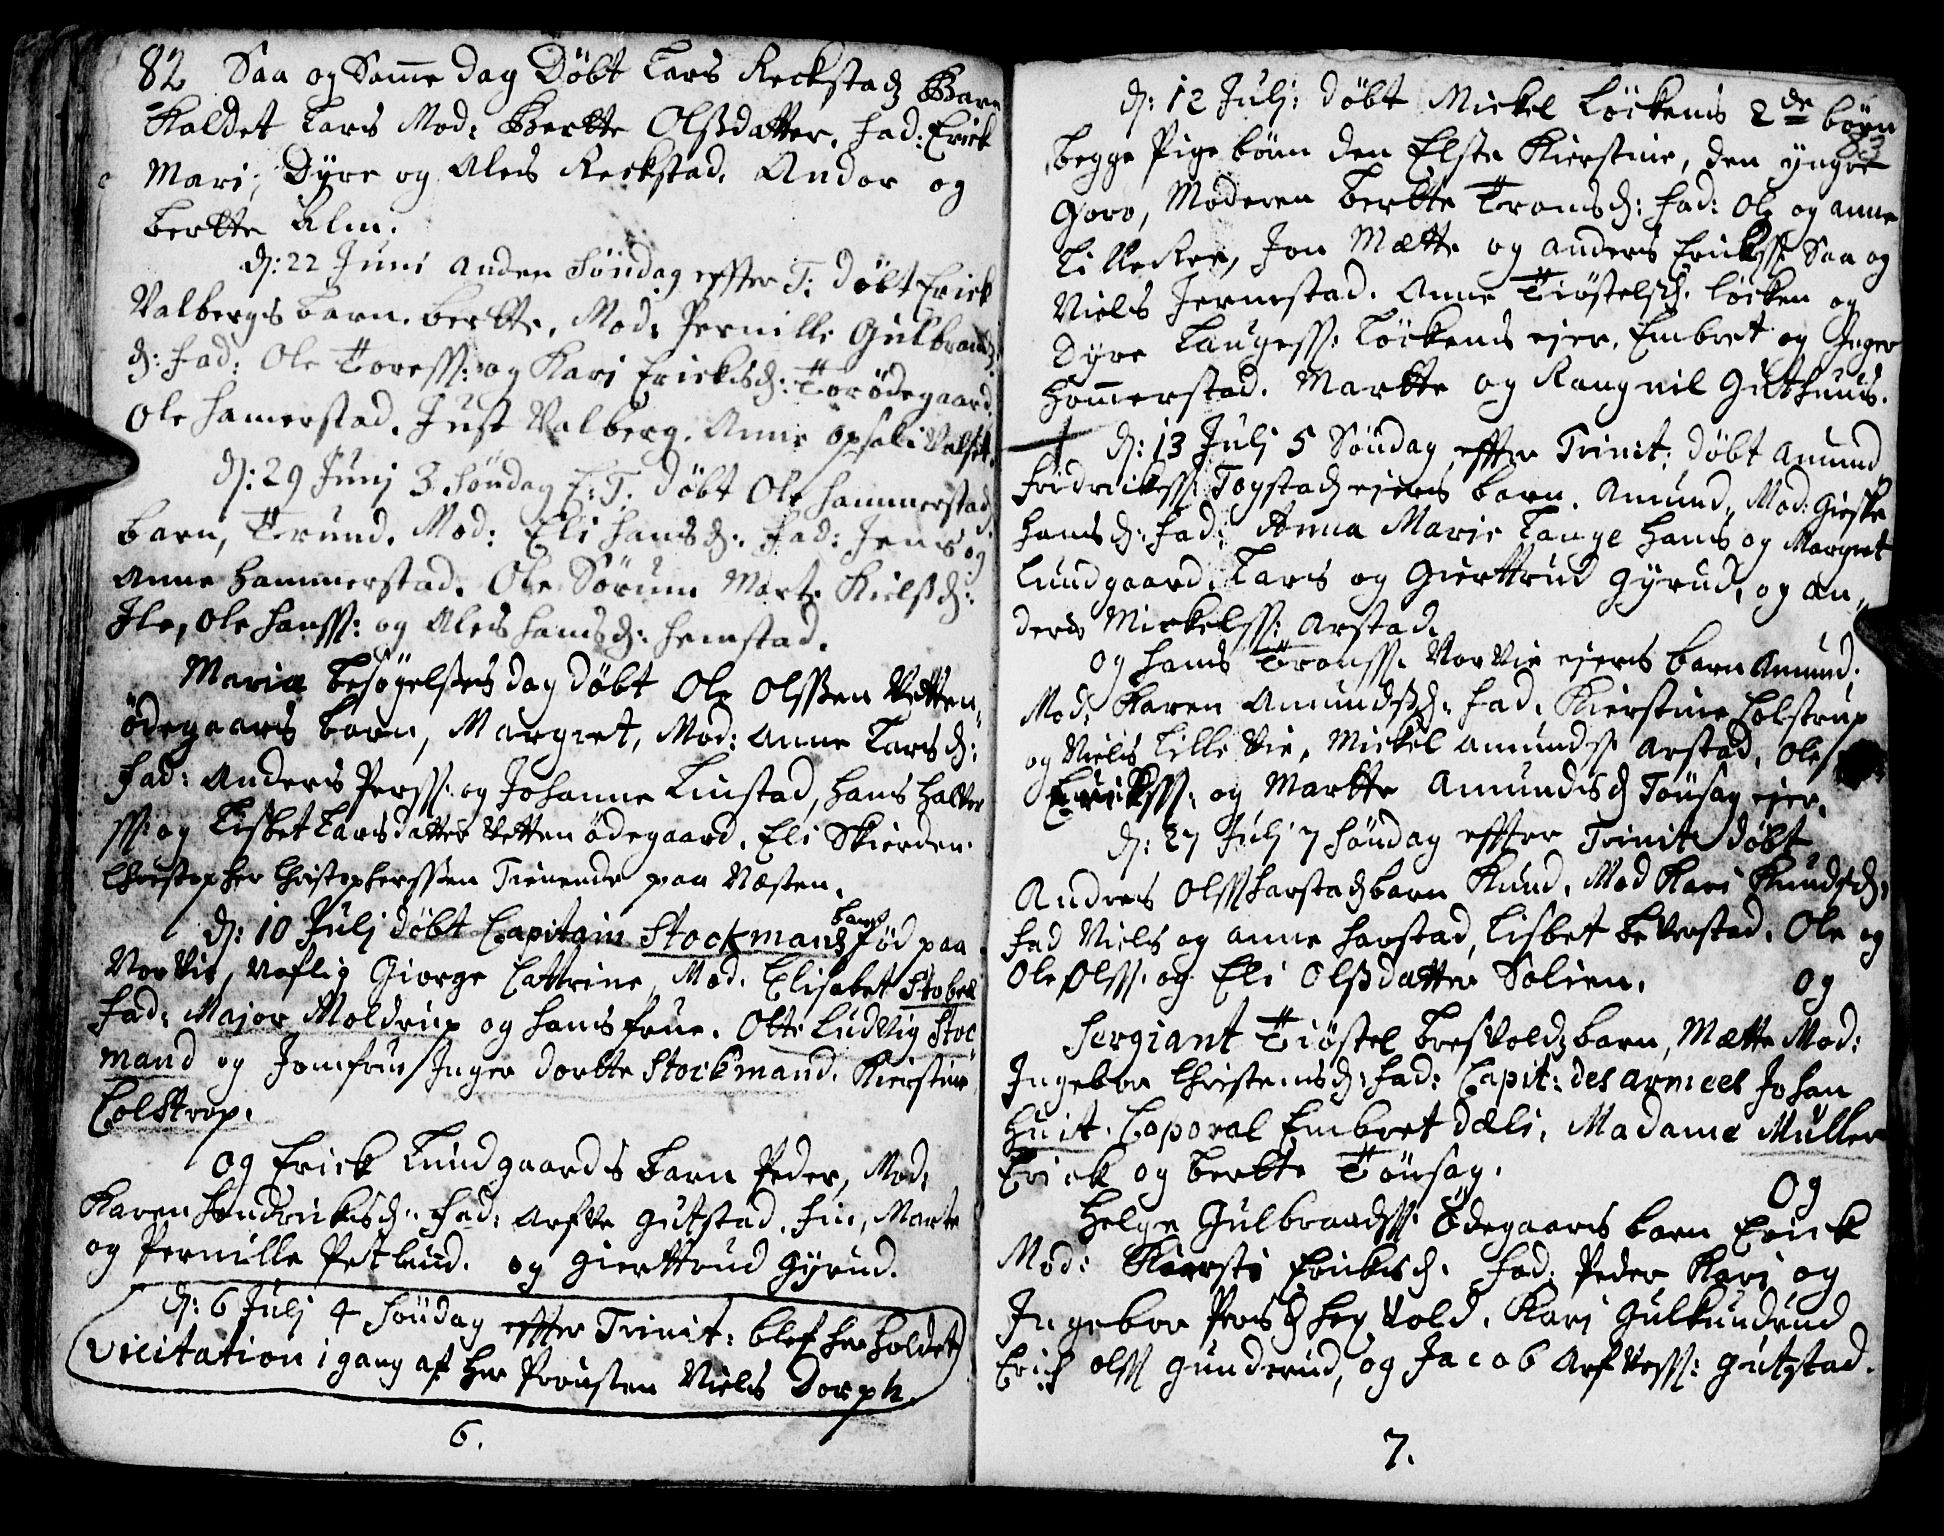 82 Saa og Samme dag Döbt Lars Reckstad Barn
Kaldet Lars Mod: Berthe Olssdatter. fad: Erick
Mari, Dyre og Ales Reckstad. Andor og
berthe Alm.
d: 22 Juni anden Söndag effter T: döbt Erick
Valbergs barn. berthe. Mod: Pernille Gulbrands
d: fad: Ole Toress: og Kari Ericksd: Torödegaard
Ole hamerstad. Just Valberg. Anne opsali Valset.
d: 29 Junj 3 Söndag E: T. döbt Ole hammerstad
barn, Trund. Mod: Eli hansd: fad: Jens og
Anne hammerstad. Ole Sörum Marte Nielsd:
Ile, Ole hanss: og Ales hansd: hemstad.
Mariæ Besögelses dag döbt Ole Olssen Vetten-
ödegaars barn, Margret, Mod: Anne Larsd:
fad: Anders Perss: og Johanne Linstad, hans halvor
ss: og Lisbet Larsdatter Vettenödegaard. Eli Skierden.
Christopher Christopherssen Tienende paa Næsten.
d: 10 Julj döbt Capitain Stockmans barn föd paa
Vorvie, Naflig Giorge Cattrine, Mod. Elisabet Stobæ
fad: Major Moldrup og hans frue. Otte Ludvig Stoc
mand og Jomfru Inger dorthe Stockmand. Kierstine
Colstrop.
og Erick Lundgaards barn Peder, Mod:
Karen hendricksd: fad: Arfve gutstad. fin, Marte
og Pernille Petlund. og gierttrud gÿrud.
d: 6 Julj 4 Söndag effter Trinit: blef her holdet
vicitation i gang af Her Prousten Niels Dorph.
6.
d: 12 Julj: döbt Mickel Löckens 2de börn
83
begge Pige börn den Elste Kierstine, den yngre
Goro, Moderen berthe Tronsd: fad: Ole og anne
Lille Ree, Jon Mætte og anders Erickss: Saa og
Niels Jernestad. Anne Tiöstelsd. löcken og
Dyre Laugess: Löckens ejer. Embret og Inger
Hommerstad. Marthe og Rangnil Guthuus.
d: 13 Julj 5 Söndag effter Trinit: döbt Amund
fridrickss: Togstad ejers barn. Amund, Mod: Gieske
hansd: fad: Anna Marie Lange hans og Margret
Lundgaard. Lars og Gierttrud gÿrud, og an-
ders Mickelss: Arstad.
og hans Tronss. Vorvie ejers barn Amund.
Mod: Karen Amundsd. fad. Kierstine Colstrup
og Niels Lille Vie, Mickel Amundss: Arstad, Ole
Erickss: og Marthe Amundsd Tönsag ejer.
d: 27 Julj 7 Söndag effter Trinit döbt
Andres Olss harstad barn Knud. Mod Kari Knudsd:
fad Niels og anne harstad, Lisbet beverstad. Ole og
Ole Olss: og Eli Olssdatter Solien.
og
Sergiant Tiöstel bresvold barn, Mætte Mod:
Ingebor Christensd: fad: Capit: des armees Johan
Huit. Caporal Embret dæli. Madame Müller
Erick og berthe Tönsag.
Og
Helge Gulbrandss: Ödegaars barn Erick
Mod: Kiersti Ericksd: fad: Peder Kari og
Ingebor Persd heg vold. Kari Gulkundrud
Erich olss gunderud, og Jacob Arfvess: gutzstad.
7.